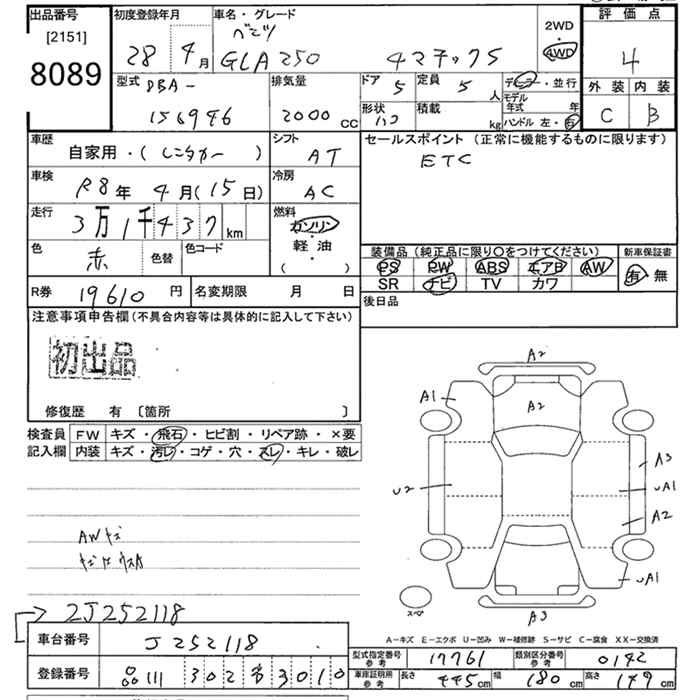 出品番号
[2151]
8089
初度登録年月
28年 4月
車名・グレード
ベンツ
GLA 250 4マチック
2WD
・
4WD
評価点
4
外装 内装
C B
型式 DBA-
156946
排気量
2000 CC
ドア 5
定員 5 人
形状 ハコ
積載 kg
ディーラー・並行
モデル
年式 年
ハンドル 左・右
車歴
自家用・( レンタカー )
シフト
AT
セールスポイント (正常に機能するものに限ります)
ETC
車検
R8年 4月(15日)
冷房
AC
走行
3万1千437km
燃料
ガソリン
・
軽油
( )
色
赤
色替
色コード
装備品 (純正品に限り〇をつけてください)
PS PW ABS エアB AW
SR ナビ TV カワ
新車保証書
有・無
R券 19610円
名変期限 月 日
後日品
注意事項申告欄(不具合内容等は具体的に記入して下さい)
初出品
修復歴 有 〔箇所 〕
検査員
記入欄
FW キズ・飛石・ヒビ割・リペア跡・×要
内装 キズ・汚レ・コゲ・穴・スレ・キレ・破レ
AWキズ
A2
A1
A2
A3
U2
UA1
A2
UA1
スペア
A3
A-キズ E-エクボ U-凹み W-補修跡 S-サビ C-腐食 XX-交換済
2J252118
車台番号 J252118
登録番号 品川 302 す 3010
型式指定番号
参考
17761
類別区分番号
参考
0142
車庫証明用
参考
長さ 445cm
幅 180cm
高さ 149cm